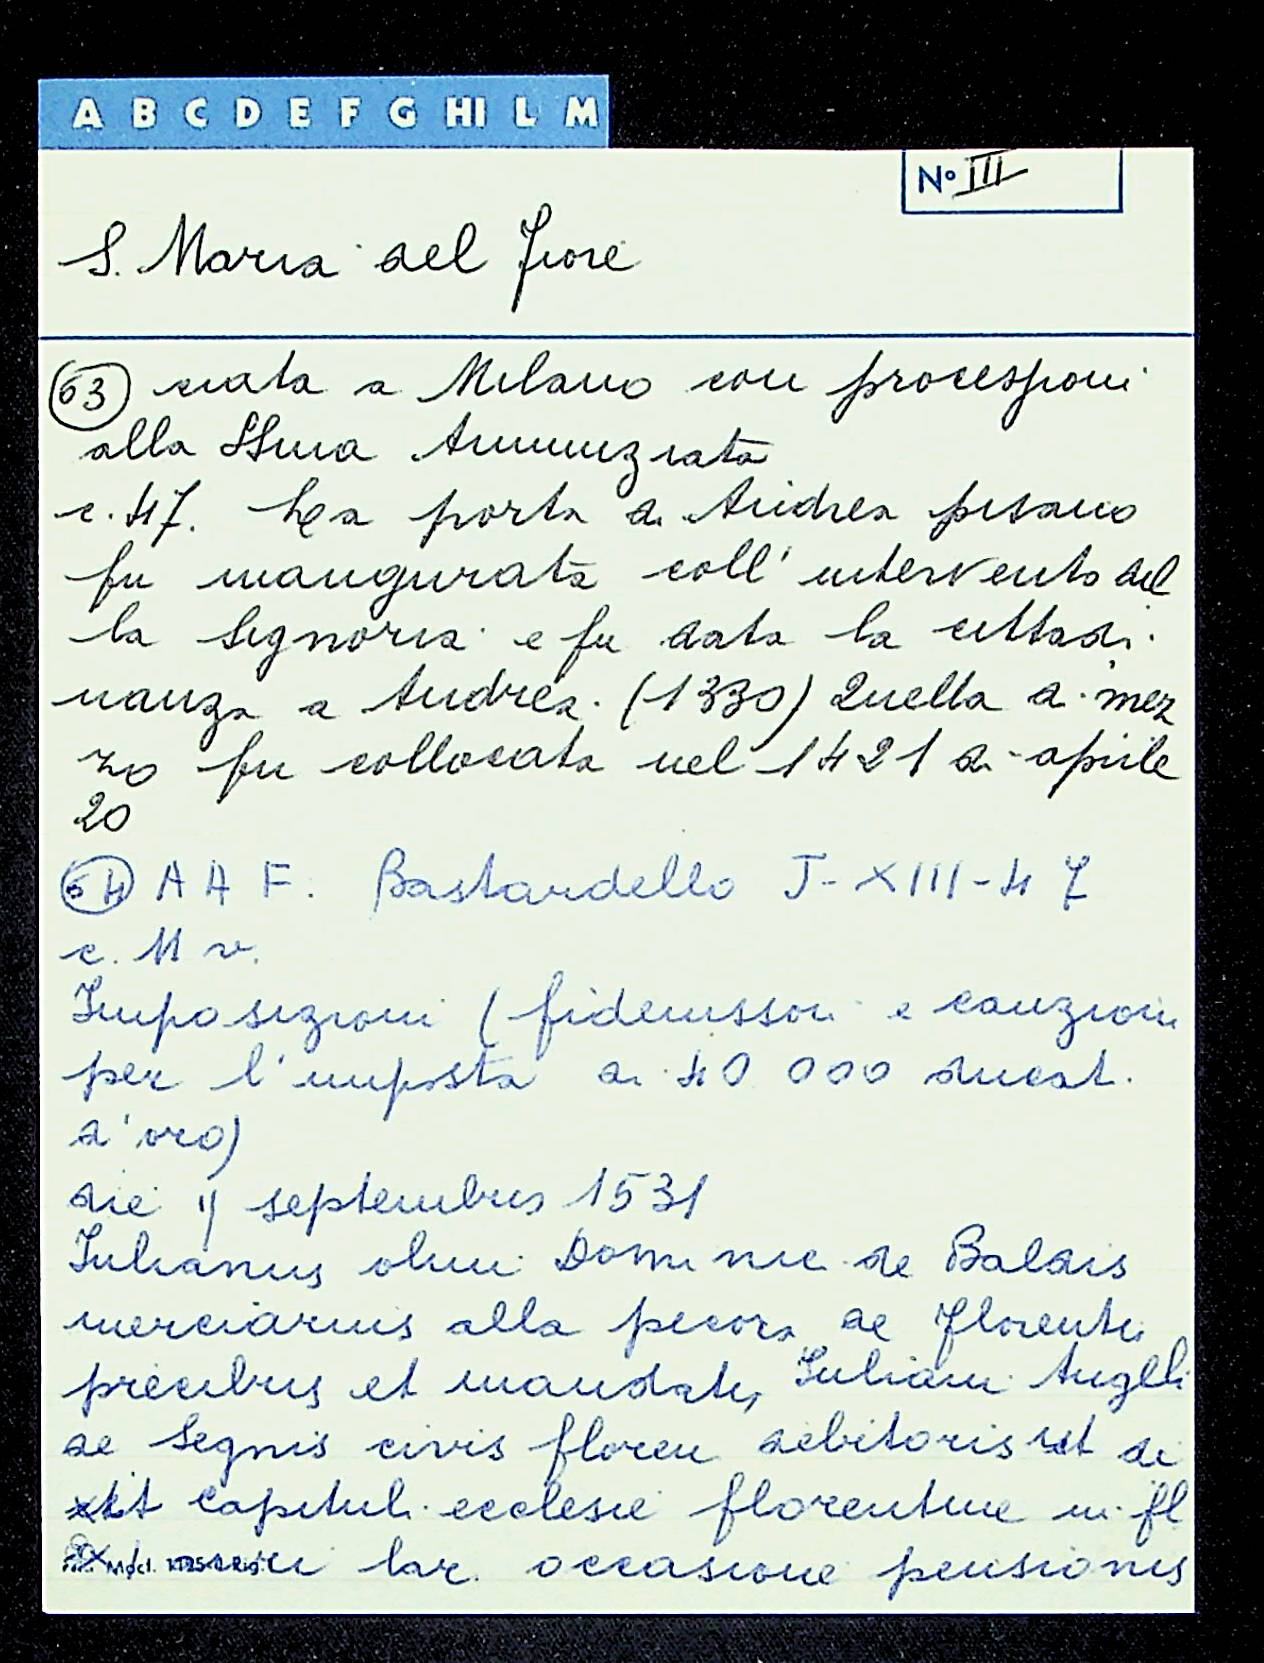 A B C D E F G HI L M
N° III
S. Maria del Fiore
(63) ciata a Milano con processioni
alla SSma Annunziata
c. 47. La porta di Andrea pisano
fu inaugurata coll' intervento del
la Signoria e fu data la cittadi
nanza a Andrea. (1330) Quella di mez
zo fu collocata nel 1421 di aprile
20
(64) A A F. Bastardello J-XIII-47
c. 11 v.
Imposizioni (fideiussori e cauzioni
per l'imposta di 40 000 ducat.
d'oro)
die 11 septembris 1531
Iulianus olim Dominici de Baldis
merciarius alla pecora de Florentia
precibus et mandatis Iuliani Angeli
de Segnis civis floren debitoris ut di
xit capituli ecclesie florentine in fl
auri lar. occasione pensionis